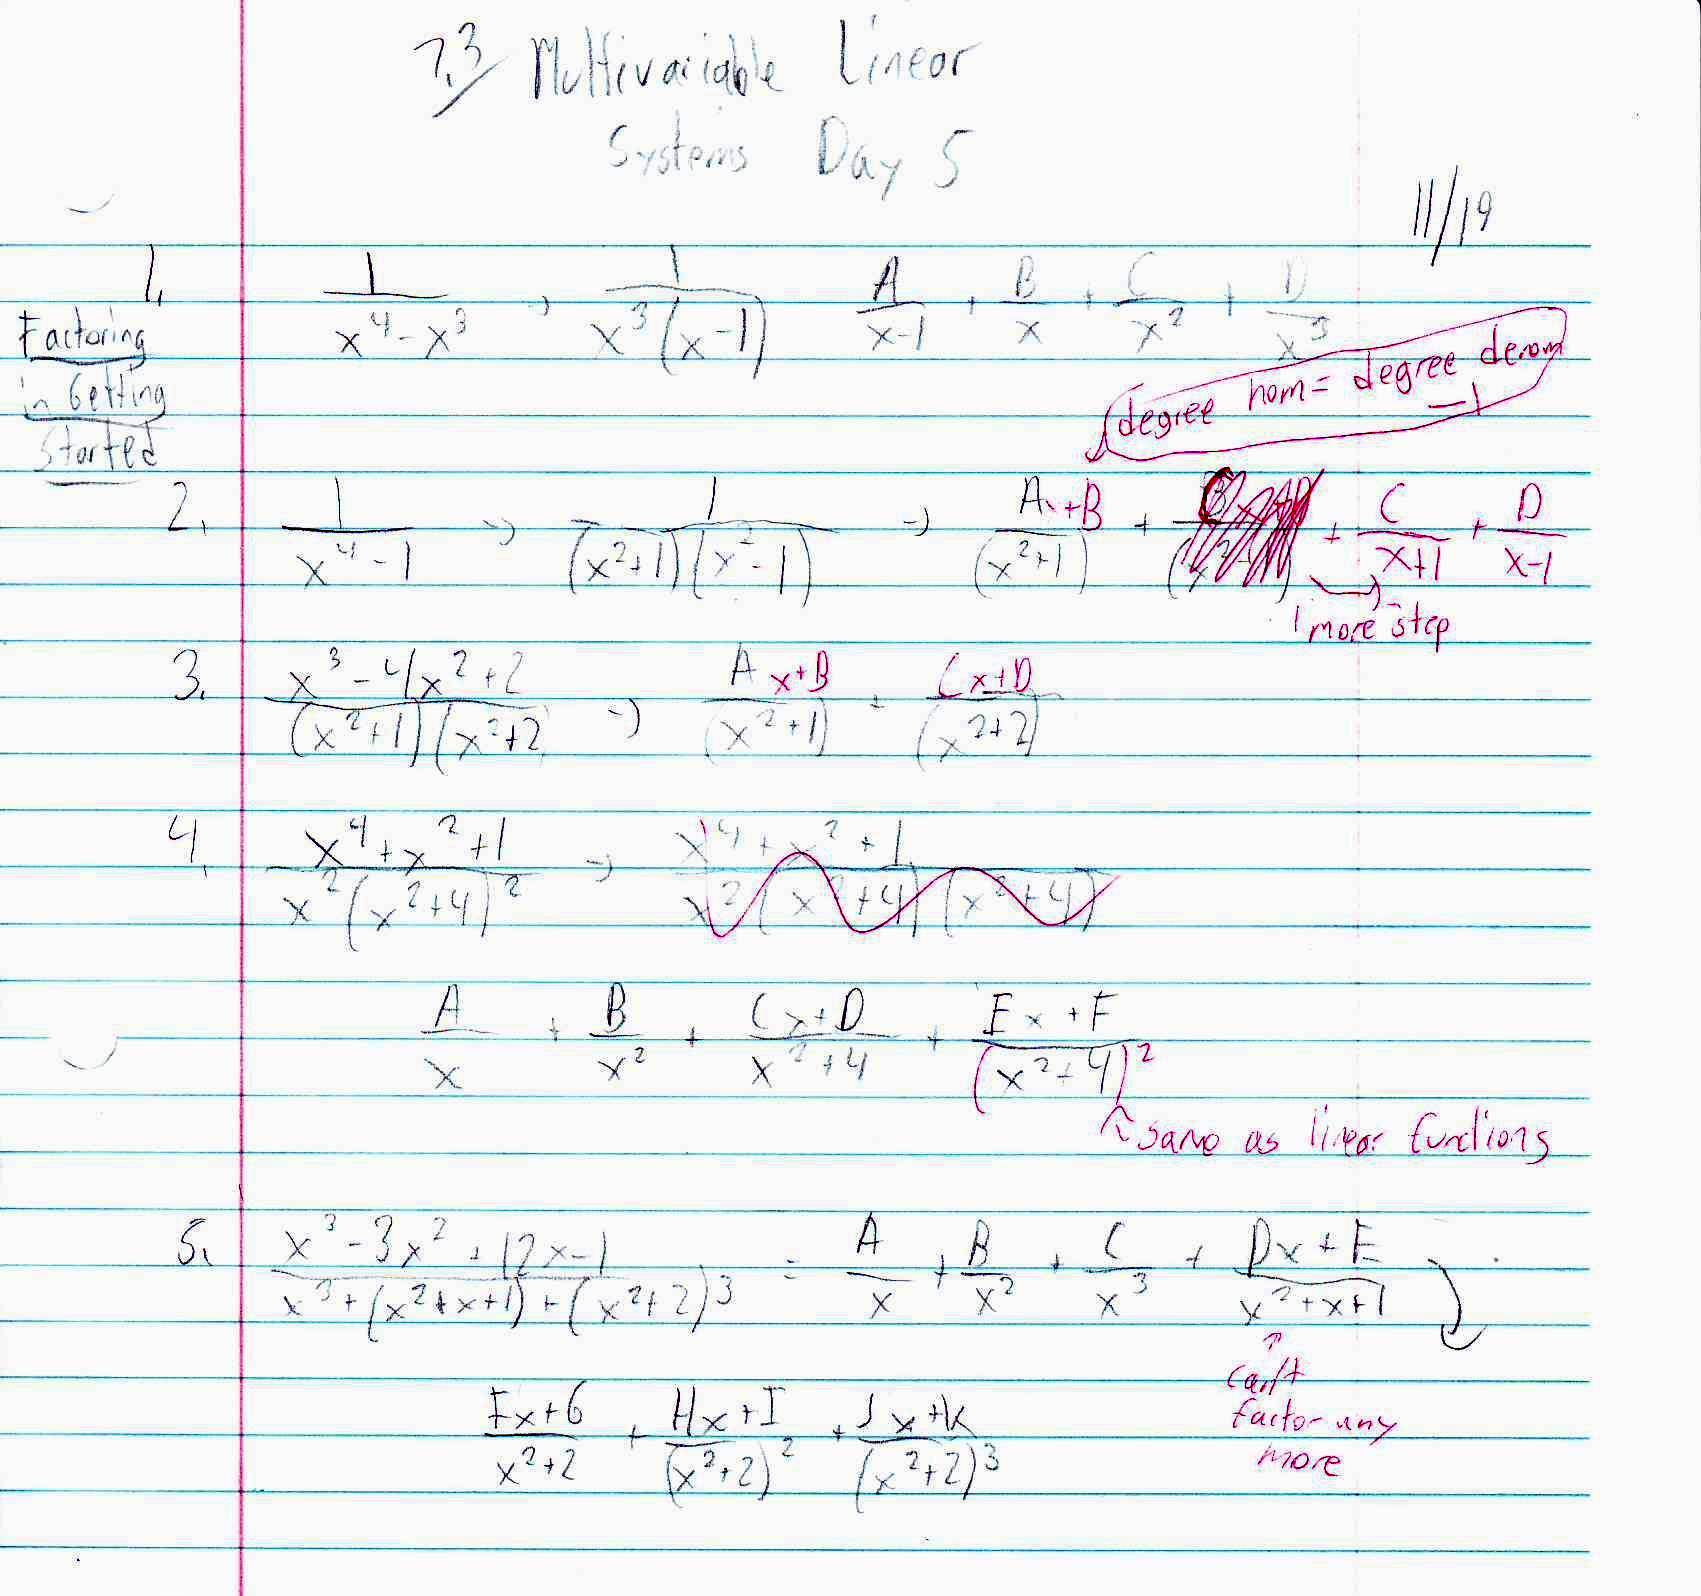 7.3 Multivariable Linear
Systems Day 5
11/19
Factoring
in Getting
Started
1. 1/(x^4 - x^3) → 1/(x^3(x-1)) A/(x-1) + B/x + C/x^2 + D/x^3
degree nom = degree denom
-1
2. 1/(x^4 - 1) → 1/((x^2+1)(x^2-1)) → (Ax+B)/(x^2+1) + + C/(x+1) + D/(x-1)
1 more step
3. (x^3 - 4x^2 + 2)/((x^2+1)(x^2+2) → (Ax+B)/(x^2+1) + (Cx+D)/(x^2+2)
4. (x^4 + x^2 + 1)/(x^2(x^2+4)^2) → (x^4 + x^2 + 1)/(x^2(x^2+4)(x^2+4))
A/x + B/x^2 + (Cx+D)/(x^2+4) + (Ex+F)/(x^2+4)^2
↑ same as linear functions
5. (x^3 - 3x^2 + 12x - 1)/(x^3 + (x^2+x+1) + (x^2+2)^3) = A/x + B/x^2 + C/x^3 + (Dx+E)/(x^2+x+1)
↑
can't
factor any
more
(Fx+G)/(x^2+2) + (Hx+I)/(x^2+2)^2 + (Jx+K)/(x^2+2)^3